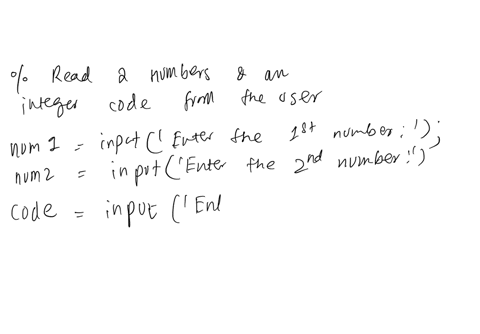 % Read 2 numbers & an
integer code from the user
num1 = input('Enter the 1st number:');
num2 = input('Enter the 2nd number:')
code = input ('Ent